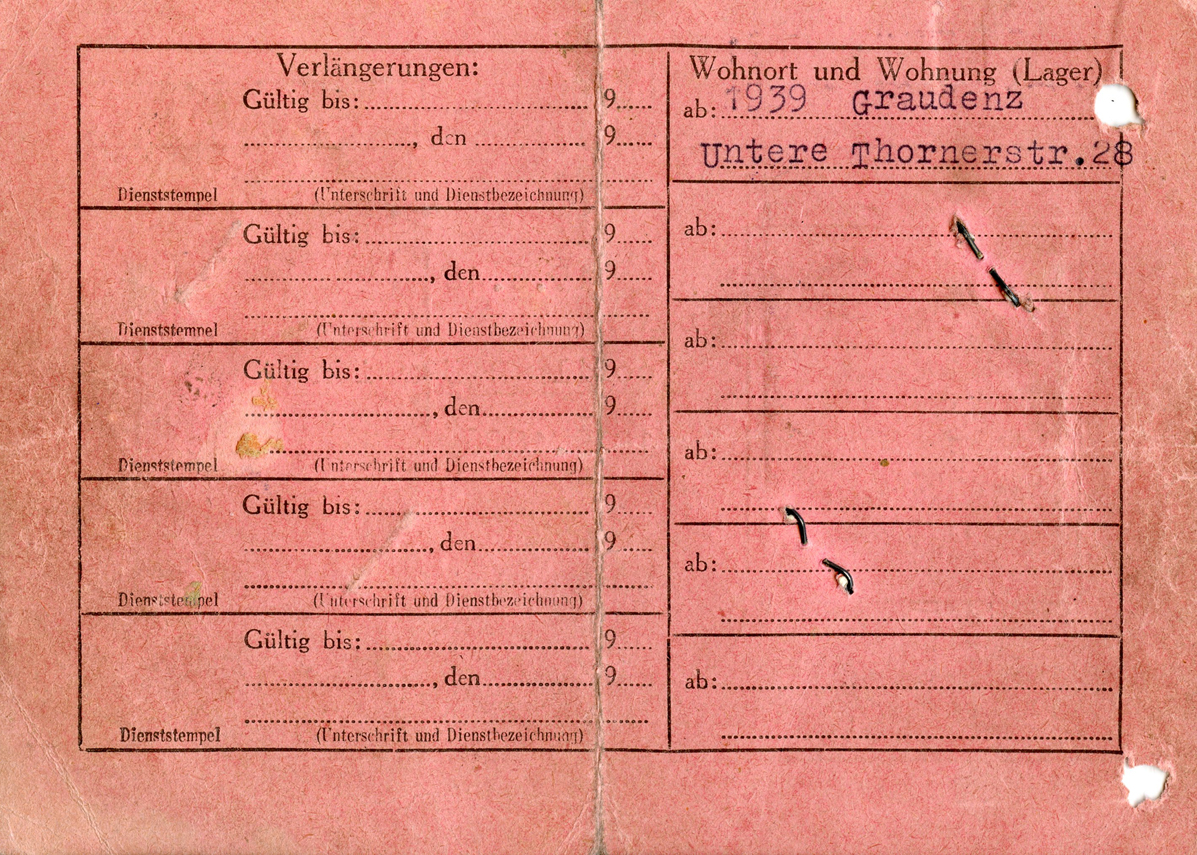 Verlängerungen:
Gültig bis: 9
, den 9
Dienststempel (Unterschrift und Dienstbezeichnung)
Gültig bis: 9
, den 9
Dienststempel (Unterschrift und Dienstbezeichnung)
Gültig bis: 9
, den 9
Dienststempel (Unterschrift und Dienstbezeichnung)
Gültig bis: 9
, den 9
Dienststempel (Unterschrift und Dienstbezeichnung)
Gültig bis: 9
, den 9
Dienststempel (Unterschrift und Dienstbezeichnung)
Wohnort und Wohnung (Lager)
ab: 1939 Graudenz
Untere Thornerstr.28
ab:
ab:
ab:
ab:
ab: